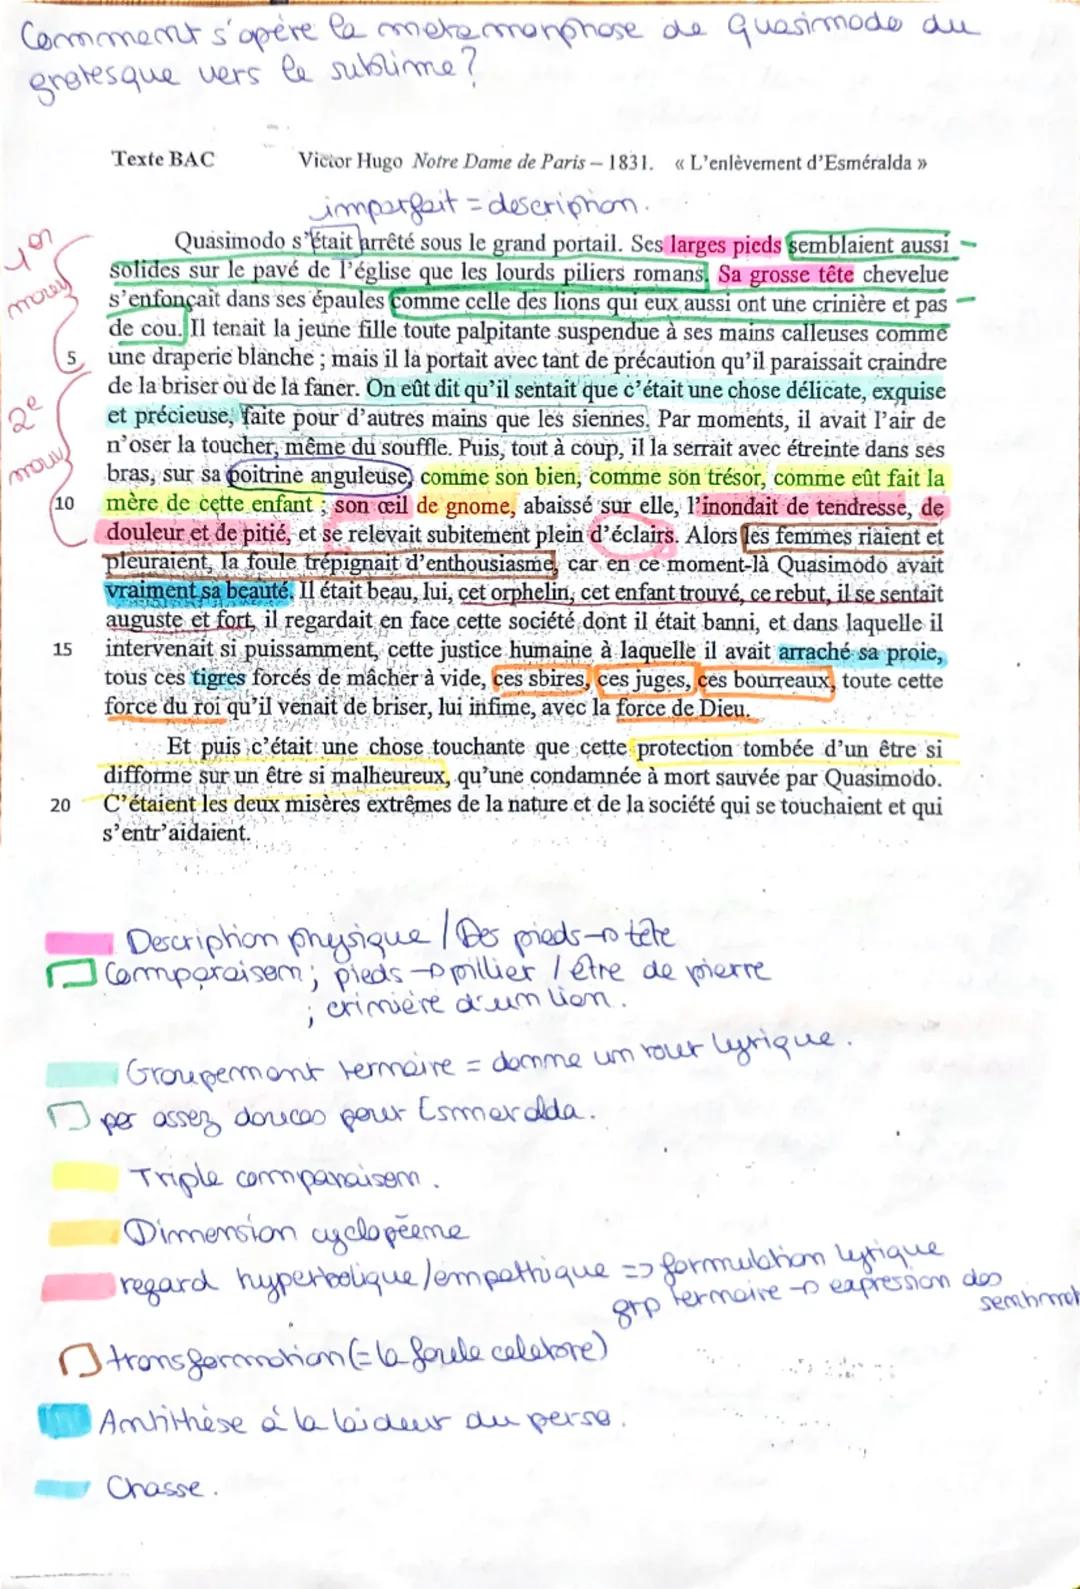 Comment s'opère la metamorphose de Quasimodo du
grotesque vers le sublime?
Texte BAC Victor Hugo Notre Dame de Paris – 1831. « L'enlèvement d'Esméralda »
imparfait = description.
1er
mouv
2e
mouv
Quasimodo s'était arrêté sous le grand portail. Ses larges pieds semblaient aussi
solides sur le pavé de l'église que les lourds piliers romans. Sa grosse tête chevelue
s'enfonçait dans ses épaules comme celle des lions qui eux aussi ont une crinière et pas
de cou. Il tenait la jeune fille toute palpitante suspendue à ses mains calleuses comme
5 une draperie blanche ; mais il la portait avec tant de précaution qu'il paraissait craindre
de la briser ou de la faner. On eût dit qu'il sentait que c'était une chose délicate, exquise
et précieuse, faite pour d'autres mains que les siennes. Par moments, il avait l'air de
n'oser la toucher, même du souffle. Puis, tout à coup, il la serrait avec étreinte dans ses
bras, sur sa poitrine anguleuse, comme son bien, comme son trésor, comme eût fait la
10 mère de cette enfant ; son œil de gnome, abaissé sur elle, l'inondait de tendresse, de
douleur et de pitié, et se relevait subitement plein d'éclairs. Alors les femmes riaient et
pleuraient, la foule trépignait d'enthousiasme, car en ce moment-là Quasimodo avait
vraiment sa beauté. Il était beau, lui, cet orphelin, cet enfant trouvé, ce rebut, il se sentait
auguste et fort, il regardait en face cette société dont il était banni, et dans laquelle il
15 intervenait si puissamment, cette justice humaine à laquelle il avait arraché sa proie,
tous ces tigres forcés de mâcher à vide, ces sbires, ces juges, ces bourreaux, toute cette
force du roi qu'il venait de briser, lui infime, avec la force de Dieu.
Et puis c'était une chose touchante que cette protection tombée d'un être si
difforme sur un être si malheureux, qu'une condamnée à mort sauvée par Quasimodo.
20 C'étaient les deux misères extrêmes de la nature et de la société qui se touchaient et qui
s'entr'aidaient.
Description physique / Des pieds → tête
Comparaison ; pieds → pillier / être de pierre
; crinière d'un lion.
Groupement ternaire = donne un tour lyrique.
pas assez douces pour Esmeralda.
Triple comparaison.
Dimension cyclopéene
regard hyperbolique/empathique => formulation lyrique
grp ternaire → expression des
sentiment
transformation (= la foule celebre)
Antithèse à la laideur du perso.
Chasse.